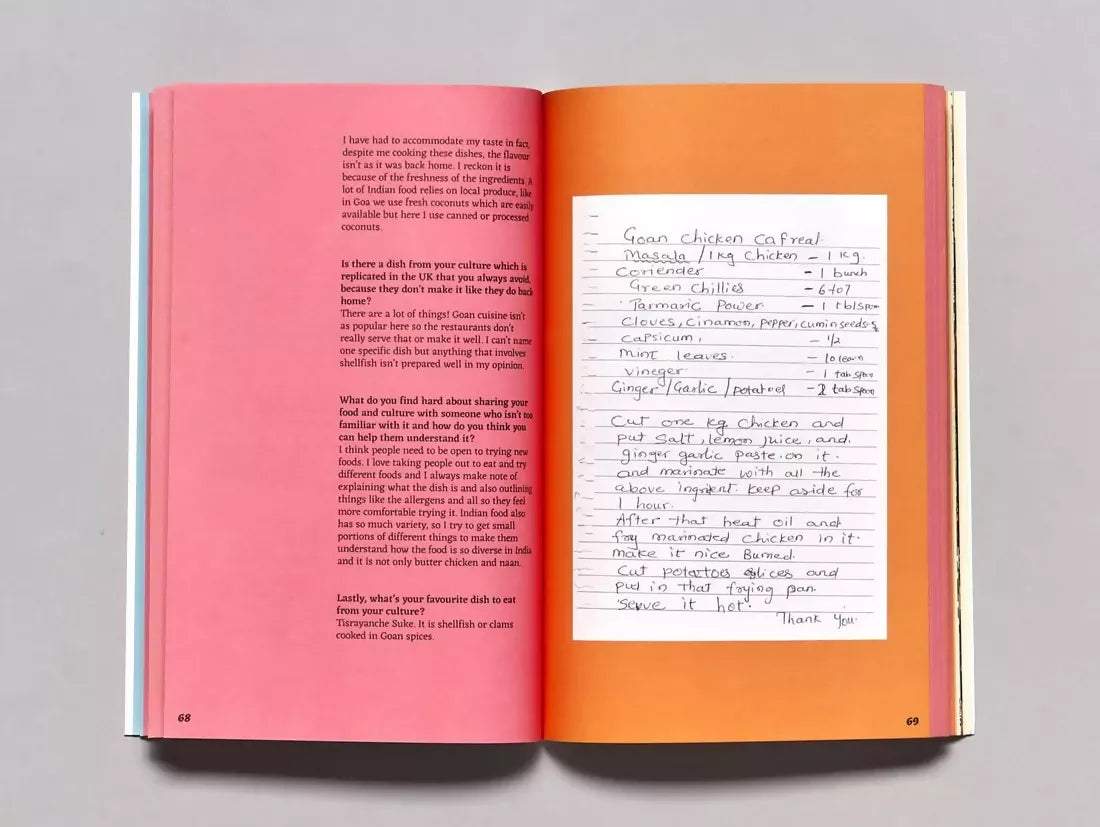 I have had to accommodate my taste in fact,
despite me cooking these dishes, the flavour
isn't as it was back home. I reckon it is
because of the freshness of the ingredients. A
lot of Indian food relies on local produce, like
in Goa we use fresh coconuts which are easily
available but here I use canned or processed
coconuts.
Is there a dish from your culture which is
replicated in the UK that you always avoid,
because they don't make it like they do back
home?
There are a lot of things! Goan cuisine isn't
as popular here so the restaurants don't
really serve that or make it well. I can't name
one specific dish but anything that involves
shellfish isn't prepared well in my opinion.
What do you find hard about sharing your
food and culture with someone who isn't too
familiar with it and how do you think you
can help them understand it?
I think people need to be open to trying new
foods. I love taking people out to eat and try
different foods and I always make note of
explaining what the dish is and also outlining
things like the allergens and all so they feel
more comfortable trying it. Indian food also
has so much variety, so I try to get small
portions of different things to make them
understand how the food is so diverse in India
and it is not only butter chicken and naan.
Lastly, what's your favourite dish to eat
from your culture?
Tisrayanche Suke. It is shellfish or clams
cooked in Goan spices.
68
Goan chicken Cafreal.
Masala / 1 kg Chicken - 1 kg.
Coriender - 1 bunch
Green Chillies - 6 to 7
Tarmaric Power - 1 tblspon
Cloves, Cinamon, Pepper, cumin seeds &
Capsicum, - 1/2
Mint leaves. - 10 leavs
vineger - 1 tab spon
Ginger / Garlic / potatoes - 2 tab spoon
Cut one kg Chicken and
put salt, lemon juice, and.
ginger garlic paste on it.
and marinate with all the
above ingrient. keep aside for
1 hour.
After that heat oil and
fry marinated chicken in it.
make it nice Burned.
Cut potatoes slices and
put in that frying pan.
Serve it hot.
Thank You.
69